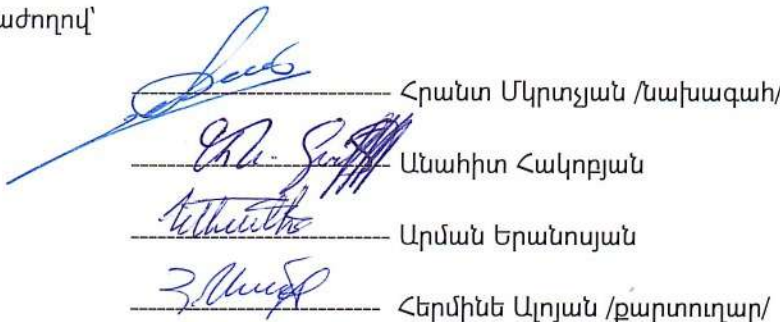 աժողով՝
Հրանտ Մկրտչյան /նախագահ/
Անահիտ Հակոբյան
Արման Երանոսյան
Հերմինե Ալոյան /քարտուղար/